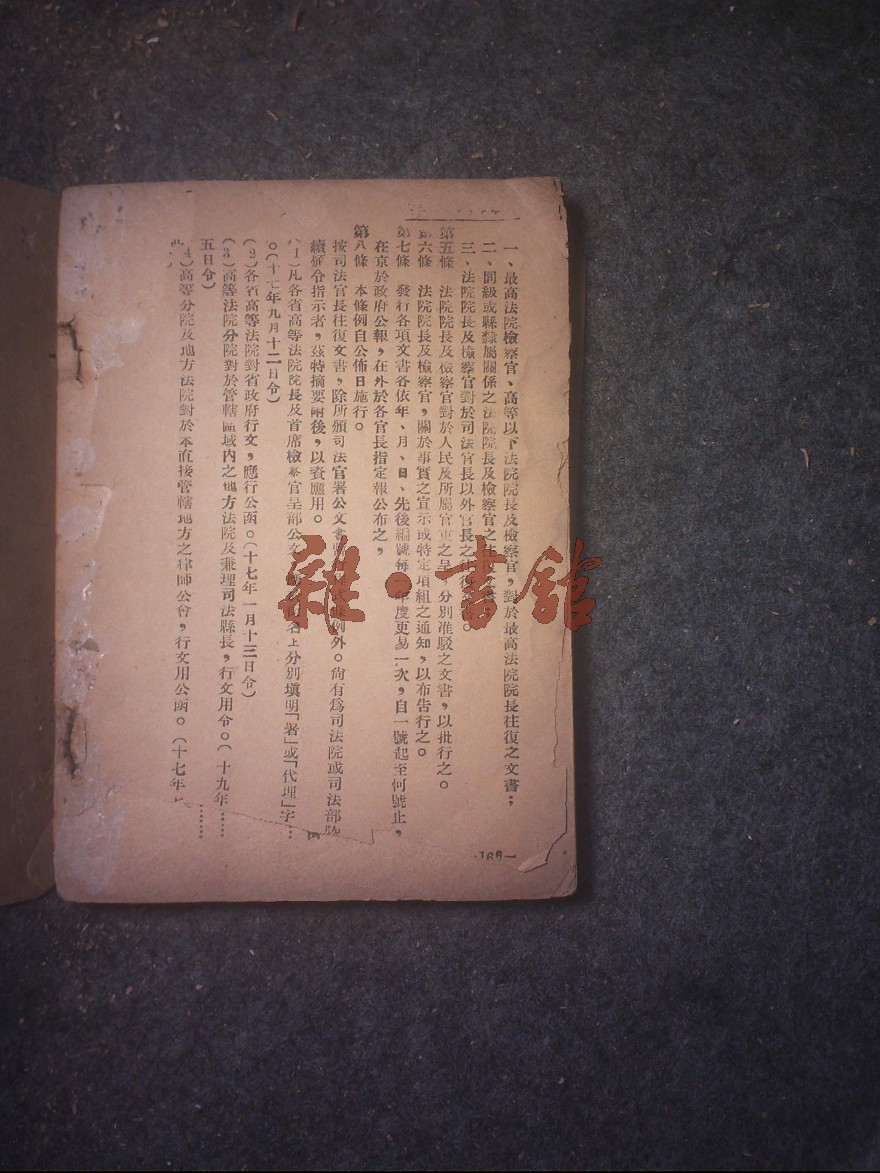 一、最高法院檢察官、高等以下法院院長及檢察官，對於最高法院院長往復之文書；
二、同級或縣隸屬關係之法院院長及檢察官之往復
三、法院院長及檢察官對於司法官長以外官長之往復。
第五條　法院院長及檢察官對於人民及所屬官吏之呈，分別准駁之文書，以批行之。
第六條　法院院長及檢察官，關於事實之宣示或特定項組之通知，以布告行之。
第七條　發行各項文書各依年、月、日、先後編號每年度更易一次，自一號起至何號止，
在京於政府公報，在外於各官長指定報公布之，
第八條　本條例自公佈日施行。
按司法官長往復文書，除所頒司法官署公文書例外。尙有爲司法院或司法部
續頒令指示者，茲特摘要附後，以資應用。
(1)凡各省高等法院院長及首席檢察官呈部公文名上分別塡明「署」或「代理」字……
。(十七年九月十二日令)
(2)各省高等法院對省政府行文，應行公函。(十七年一月十三日令)
(3)高等法院分院對於管轄區域內之地方法院及兼理司法縣長，行文用令。(十九年……
五日令)
(4)高等分院及地方法院對於本直接管轄地方之律師公會，行文用公函。(十七年
雜·書館